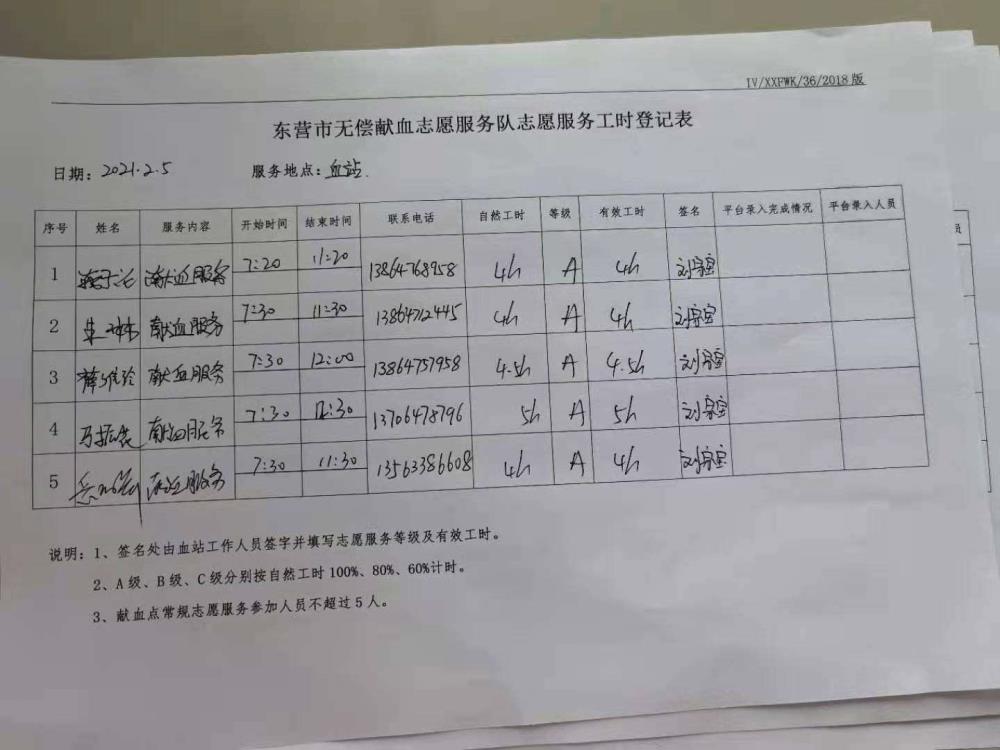 IV/XXFWK/36/2018版
东营市无偿献血志愿服务队志愿服务工时登记表
日期：2021.2.5 服务地点：血站.
序号 姓名 服务内容 开始时间 结束时间 联系电话 自然工时 等级 有效工时 签名 平台录入完成情况 平台录入人员
1 献血服务 7:20 11:20 13864768958 4h A 4h
2 献血服务 7:30 11:30 13864712445 4h A 4h
3 薛维玲 献血服务 7:30 12:00 13864757958 4.5h A 4.5h
4 献血服务 7:30 12:30 13706478796 5h A 5h
5 献血服务 7:30 11:30 13563386608 4h A 4h
说明：1、签名处由血站工作人员签字并填写志愿服务等级及有效工时。
2、A级、B级、C级分别按自然工时100%、80%、60%计时。
3、献血点常规志愿服务参加人员不超过5人。
员